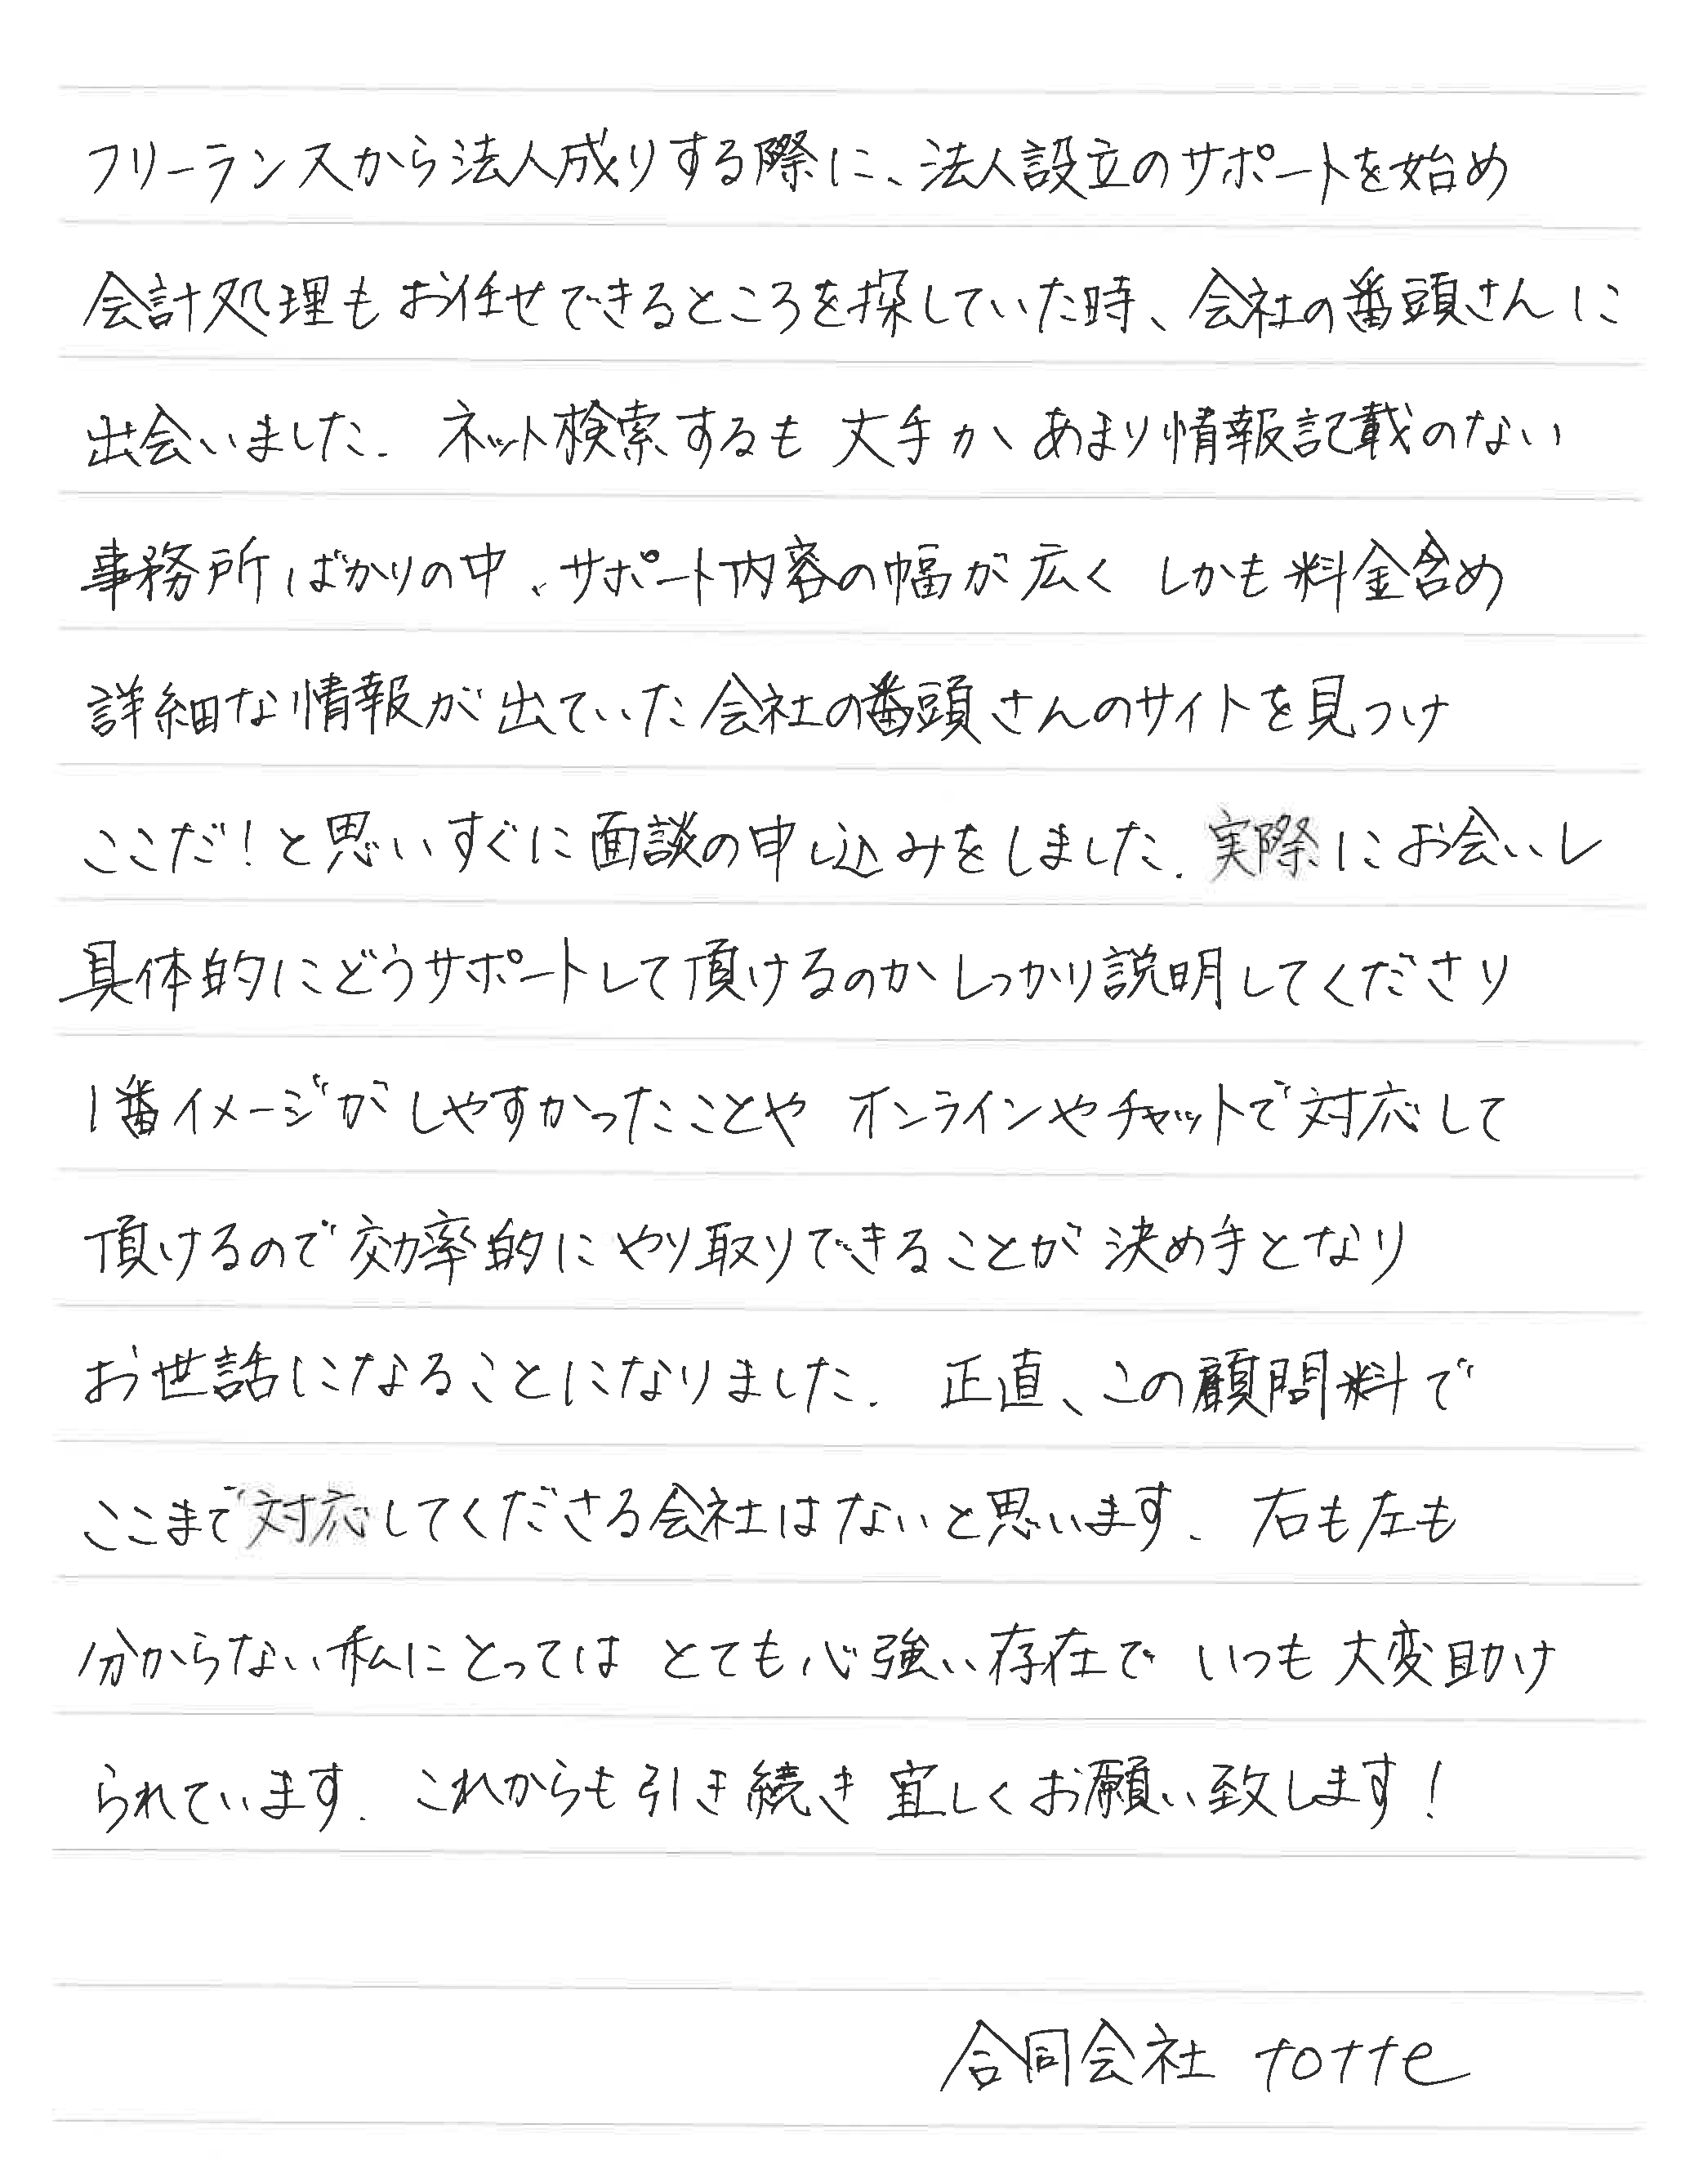 フリーランスから法人成りする際に、法人設立のサポートを始め
会計処理もお任せできるところを探していた時、会社の番頭さんに
出会いました. ネット検索するも 大手か あまり情報記載のない
事務所ばかりの中、サポート内容の幅が広く しかも料金含め
詳細な情報が出ていた会社の番頭さんのサイトを見つけ
ここだ！と思いすぐに面談の申し込みをしました. 実際にお会いし
具体的にどうサポートして頂けるのかしっかり説明してくださり
1番イメージがしやすかったことや オンラインやチャットで対応して
頂けるので効率的にやり取りできることが決め手となり
お世話になることになりました. 正直、この顧問料で
ここまで対応してくださる会社はないと思います. 右も左も
分からない私にとっては とても心強い存在で いつも大変助け
られています. これからも引き続き宜しくお願い致します！
合同会社 totte